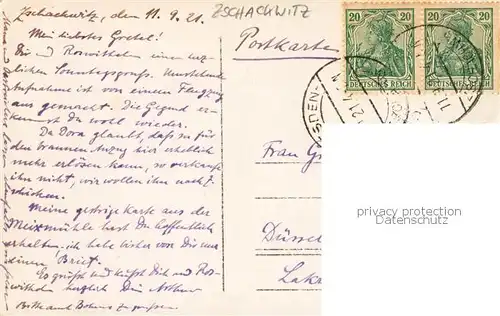 Zschachwitz, den 11. 9. 21.
ZSCHACHWITZ
Mein liebstes Gretel!
Dir und Roswithelm einen herz-
lichen Sonntagsgruss. Umstehende
Aufnahme ist von einem Flugzeug
aus gemacht. Die Gegend er-
kennst Du wohl wieder.
Da Dora glaubt, daß sie für
den braunen Anzug hier erheblich
mehr erlösen kann, so verkaufe
ihn nicht, wir wollen ihn nach Z.
schicken.
Meine gestrige Karte aus der
Meixmühle hast Du hoffentlich
erhalten, ich habe bisher von Dir nur
einen Brief.
Es grüßt und küßt Dich und Ros-
withelm herzlich Dein Arthur
Bitte auch Bohms zu grüssen.
Postkarte
20 20
DEUTSCHES REICH
20 20
DEUTSCHES REICH
Frau
Düssel
privacy protection
Datenschutz